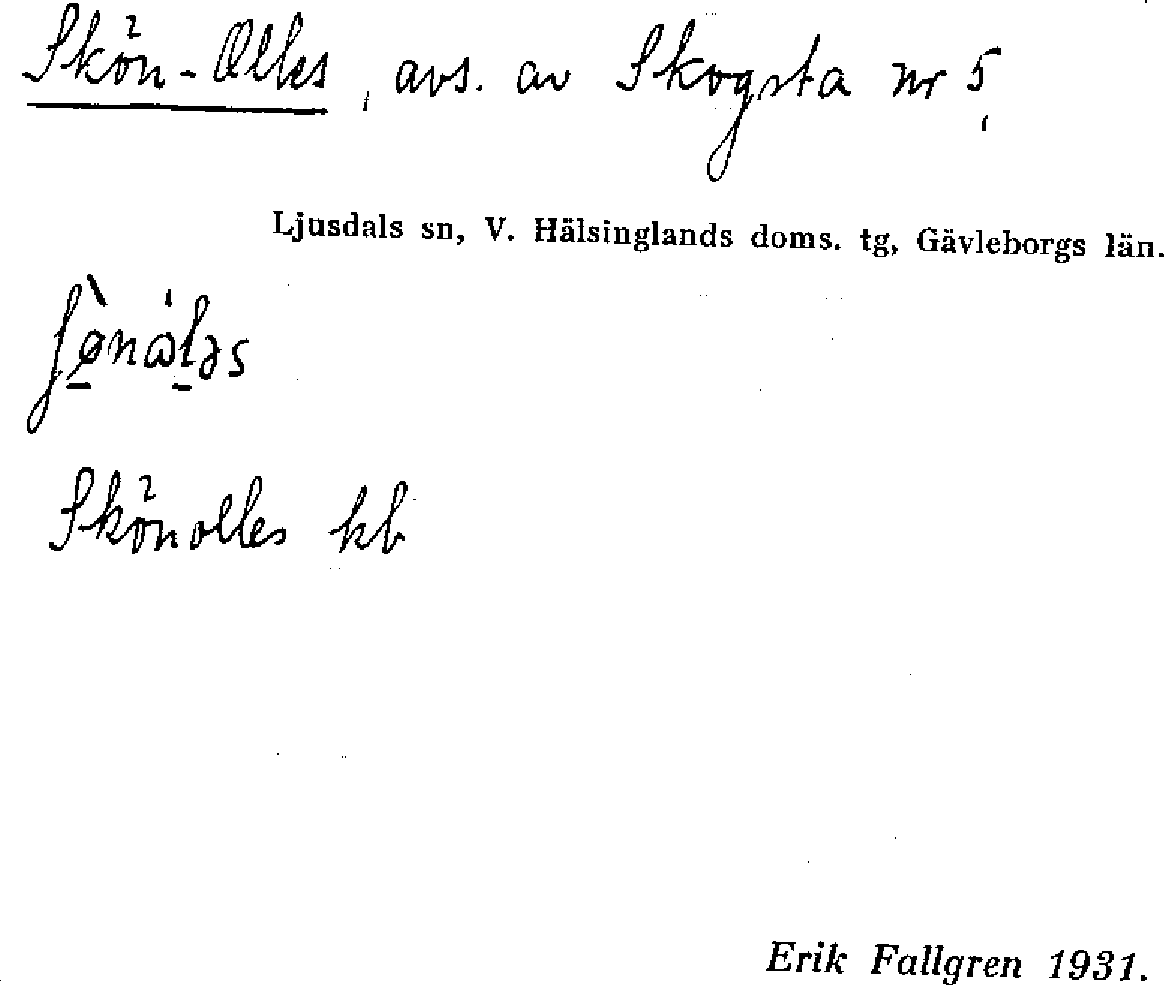 Skön-Olles, avs. av Skogsta nr 5,
Ljusdals sn, V. Hälsinglands doms. tg, Gävleborgs län.
Skönolles kb
Erik Fallgren 1931.